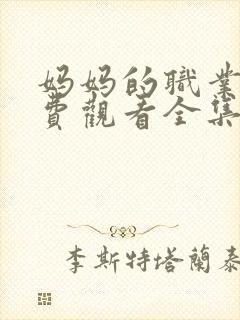 妈妈的職業
費觀看全集
李斯特塔蘭泰